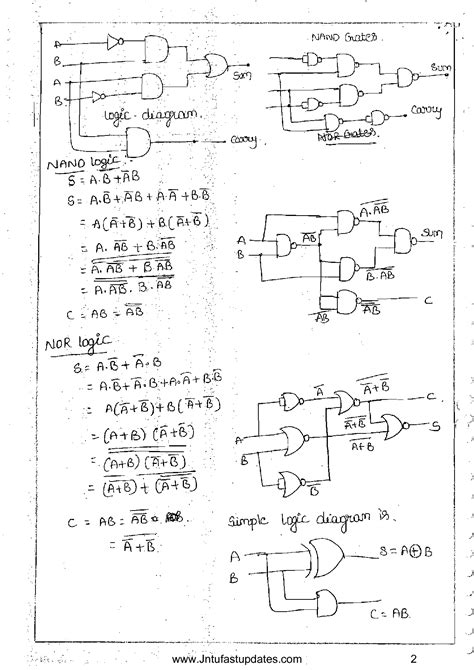 NAND Gates
A
B
Sum
A
B
Logic diagram.
Carry
Sum
Carry
NOR Gates
NAND logic :
S = A.B̅ + A̅B
S = A.B̅ + A̅B + A.A̅ + B.B̅
= A(A̅+B̅) + B(A̅+B̅)
= A. A̅B̅ + B. A̅B̅
= A. A̅B̅ + B A̅B̅
= A. A̅B̅ . B. A̅B̅
C = AB = A̅B̅
A
B
AB
A.AB
B.AB
Sum
AB
AB
C
NOR logic
S = A.B̅ + A̅.B
= A.B̅ + A̅.B + A.A̅ + B.B̅
= A(A̅+B̅) + B(A̅+B̅)
= (A+B) (A̅+B̅)
= (A+B) (A̅+B̅)
= (A+B) + (A̅+B̅)
C = AB = AB
= A̅+B̅
A
B
A̅
B̅
A̅+B̅
A+B
A+B
C
S
Simple logic diagram is.
A
B
S = A⊕B
C = AB.
www.Jntufastupdates.com
2